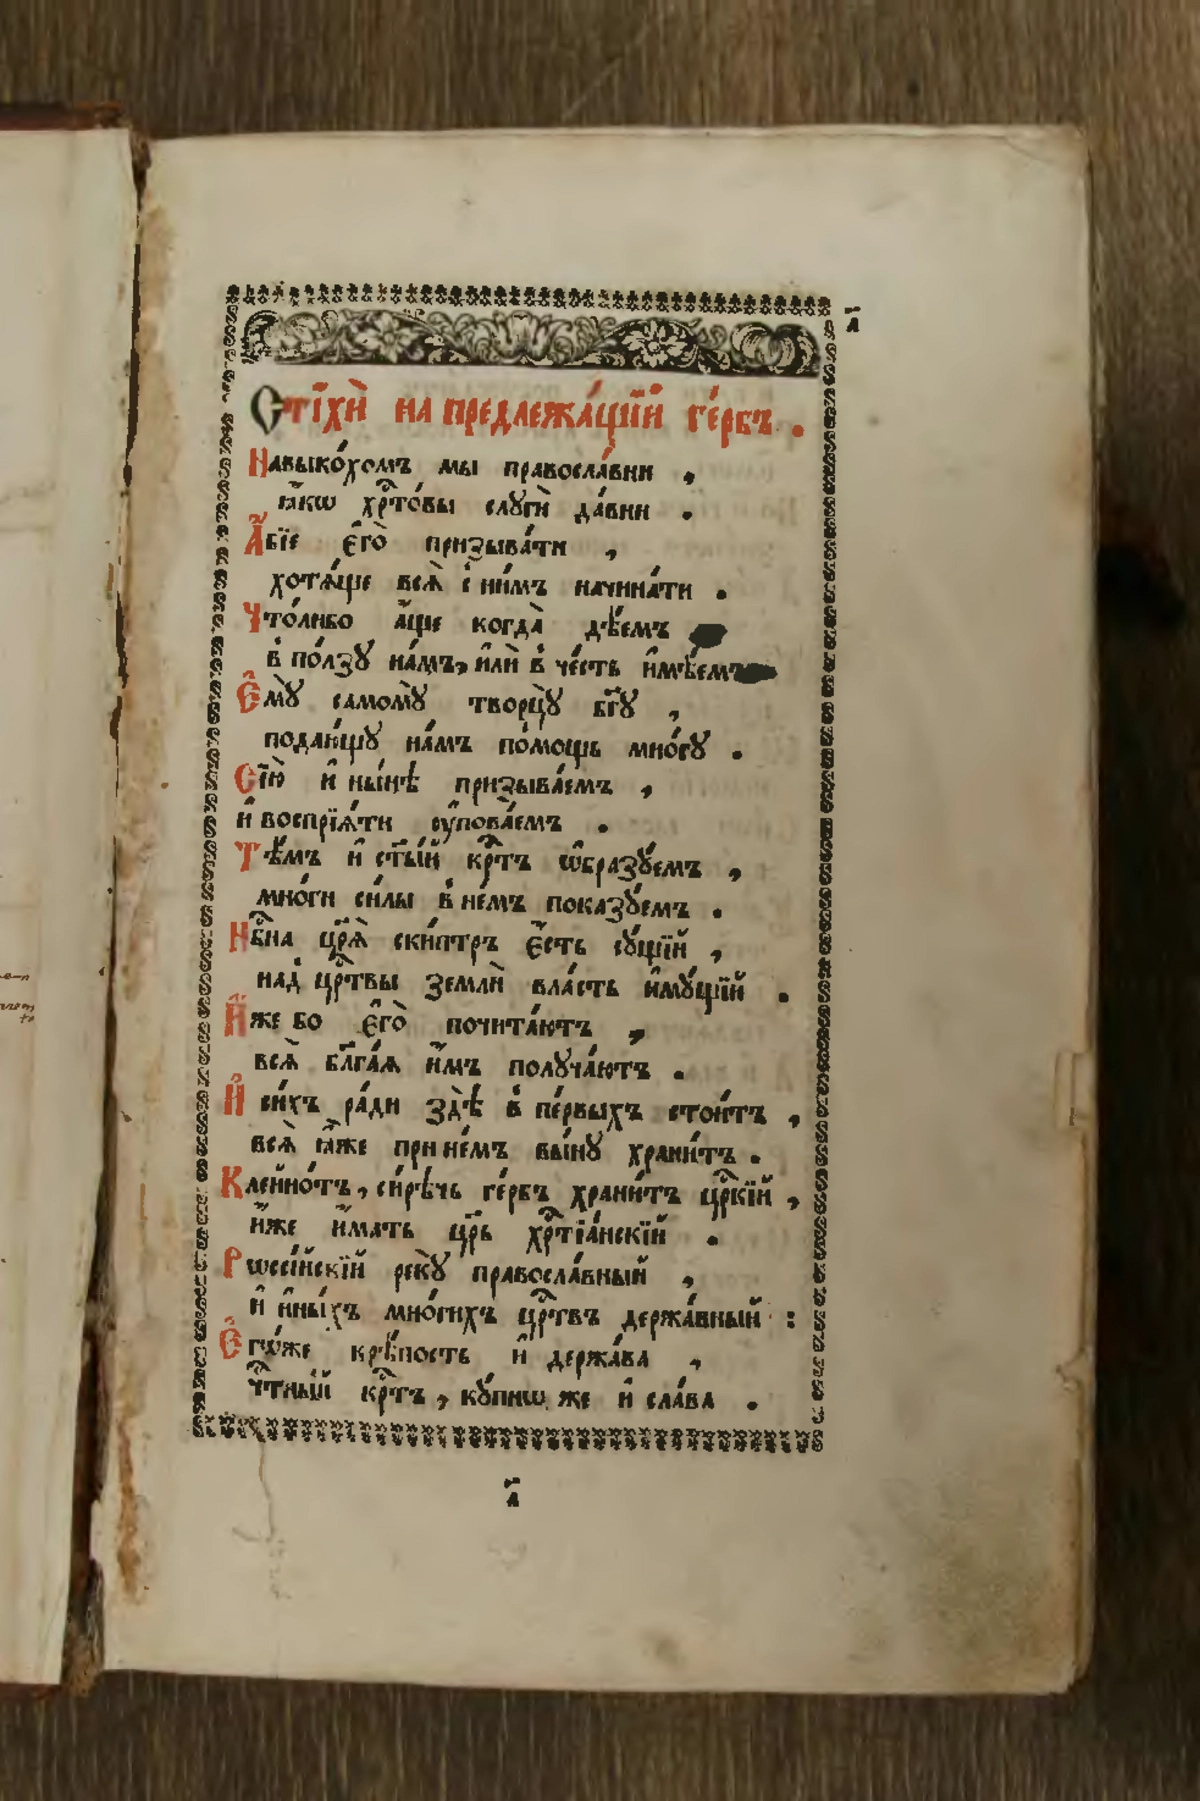 а҃
Стїхѝ на предлежа́щїй ге́рбъ.
Навыко́хомъ мы правосла́вни,
ꙗ҆́кѡ хрⷭ҇то́вы слꙋгѝ да́вни.
А҆́бїе є҆го̀ призыва́ти,
хотѧ́ще всѧ̀ с̾ ни́мъ начина́ти.
Что́либо а҆́ще когда̀ дѣ́емъ
в̾ по́лзꙋ на́мъ, и҆лѝ в̾ че́сть и҆мѣ́емъ
Є҆мꙋ̀ самомꙋ̀ творцꙋ̀ бг҃ꙋ,
подаю́щꙋ на́мъ по́мощь мно́гꙋ.
Сїю̀ и҆ ны́нѣ призыва́емъ,
и҆ воспрїѧ́ти ᲂу҆пова́емъ.
Тѣ́мъ и҆ ст҃ы́й крⷭ҇тъ ѡ҆бразꙋ́емъ,
мно́ги си́лы в̾ не́мъ показꙋ́емъ.
Нбⷭ҇на цр҃ѧ̀ скиптръ є҆́сть сꙋ́щїй,
над̾ црⷭ҇твы землѝ вла́сть и҆мꙋ́щїй.
И҆̀же бо є҆го̀ почита́ютъ,
всѧ̀ бл҃га́ѧ и҆́мъ полꙋча́ютъ.
И҆ си́хъ ра́ди здѣ̀ в̾ пе́рвыхъ стои́тъ,
всѧ̀ ꙗ҆́же при не́мъ вы́нꙋ храни́тъ.
Клейно́тъ, си́рѣчь ге́рбъ храни́тъ црⷭ҇кїй,
и҆́же и҆́мать цр҃ь хрⷭ҇тїа́нскїй.
Рѡссі́йскїй рекꙋ̀ правосла́вный,
и҆ и҆ны́хъ мно́гихъ црⷭ҇твъ держа́вный:
Є҆гѡ́же крѣ́пость и҆ держа́ва,
чⷭ҇тны́й крⷭ҇тъ, кꙋ́пнѡ же и҆ сла́ва.
а҃